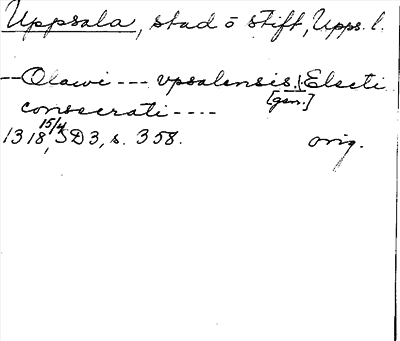 Uppsala, stad o stift, Upps. l.
-- Olawi --- vpsalensis. Electi
[gen.]
consecrati ----
1318 15/4, SD3, s. 358. orig.